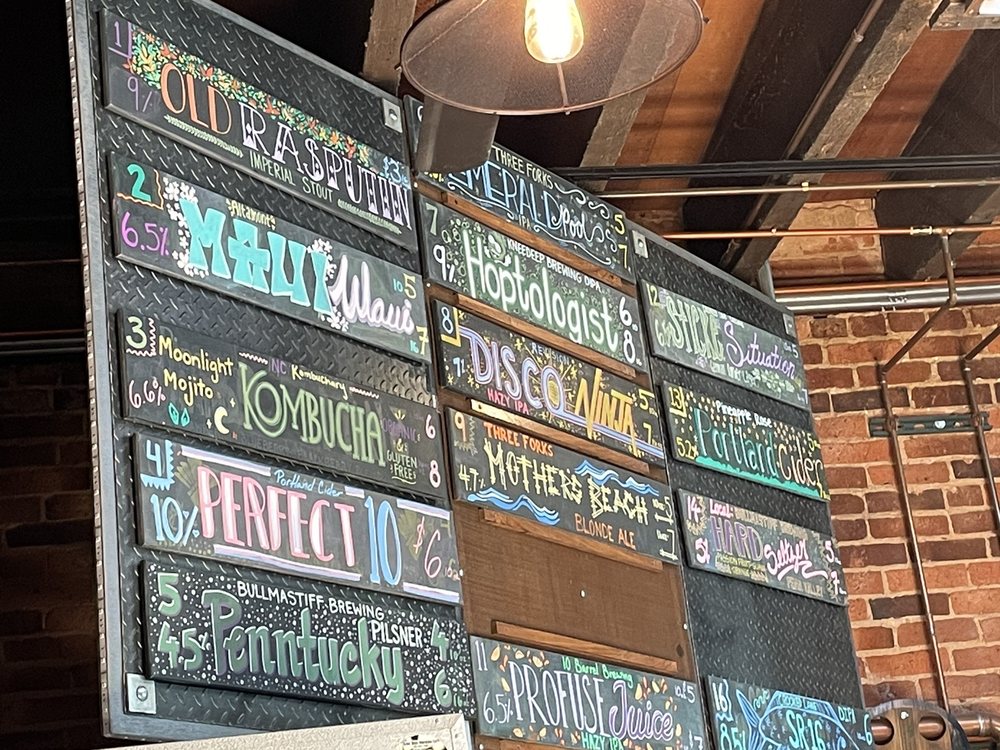 1
9%
OLD RASPUTIN
IMPERIAL STOUT
2
6.5%
Altamont
MAUI Waui
5
7
3
6.6%
Moonlight
Mojito
NC Kombuchary
KOMBUCHA
ORGANIC
& GLUTEN
FREE!
6
8
4
10%
Portland Cider
PERFECT 10
$6
5
4.5%
BULLMASTIFF BREWING
Penntucky
PILSNER
4
6
THREE FORKS
EMERALD Pool
IPA
5
7
7
9%
KNEEDEEP BREWING
Hoptologist
6
8
8
REVISION
DISCO NINJA
HAZY IPA
5
7
9
4.7%
THREE FORKS
MOTHERS BEACH
BLONDE ALE
5
7
11
6.5%
10 Barrel Brewing
PROFUSE Juice
HAZY IPA
5
12
STICKE Situation
5
7
13
5.2%
Pineapple Rose
Portland Cider
14
5%
Local:
BULLMASTIFF
HARD Seltzer
5
7
16
8.5%
SR-16
DIPA
6